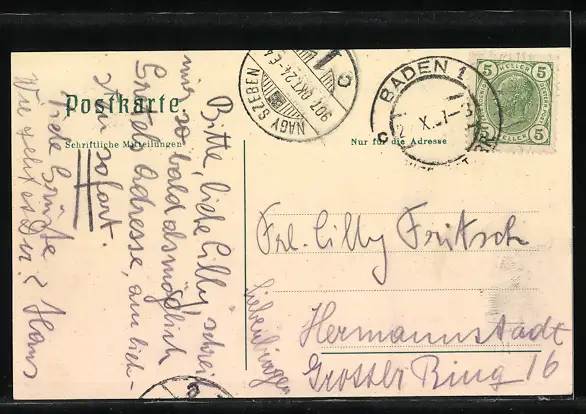 Postkarte.
Schriftliche Mitteilungen
Nur für die Adresse
Bitte, liebe Cilly, schreib
mir so bald als möglich
Gretel's Adresse, am lieb-
sten sofort.
Viele Grüße
Wie geht es Dir? Hans
Frl. Cilly Fritsch
Hermannstadt
Grosser Ring 16
Siebenbürgen
NAGY SZEBEN
907 OKT. 24
BADEN 1
5 HELLER 5
5 HELLER 5